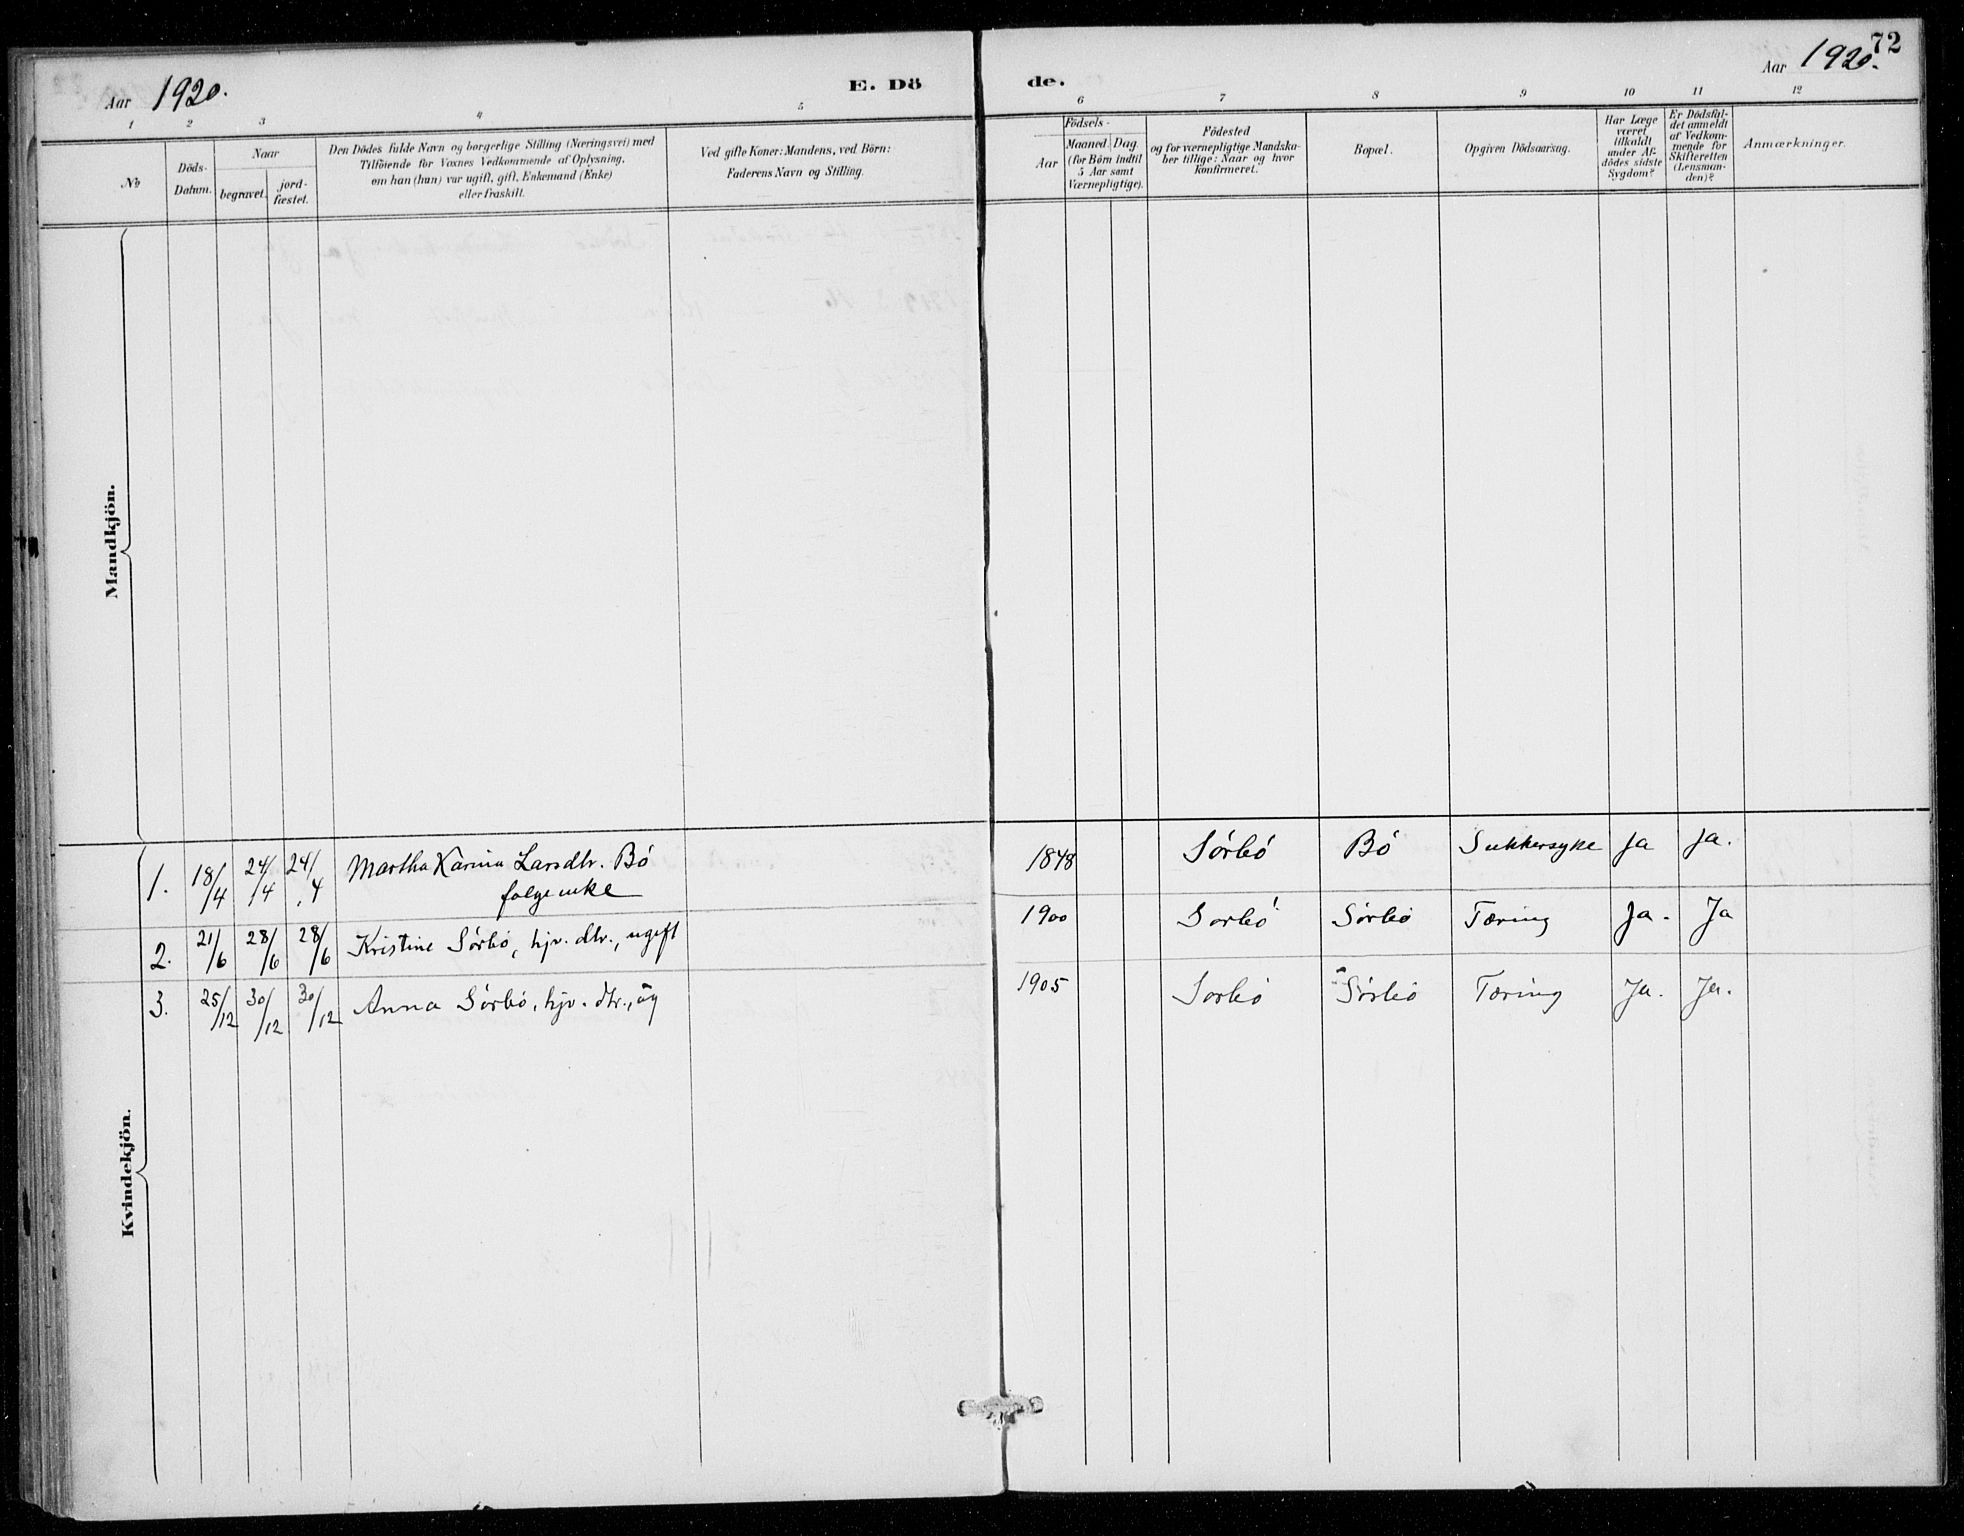 Aar 1920.
E. Dö
de.
Aar 1920.
72
1 2 3 4 5
6 7 8 9 10 11 12
№
Döds-
Datum.
Naar
begravet.
jord-
fæstet.
Den Dödes fulde Navn og borgerlige Stilling (Næringsvei) med
Tilföiende for Voxnes Vedkommende af Oplysning,
om han (hun) var ugift, gift, Enkemand (Enke)
eller fraskilt.
Ved gifte Koner: Mandens, ved Börn:
Faderens Navn og Stilling.
Födsels-
Aar
Maaned. Dag.
(for Börn indtil
5 Aar samt
Værnepligtige).
Födested
og for værnepligtige Mandska-
ber tillige: Naar og hvor
konfirmeret.
Bopæl.
Opgiven Dödsaarsag.
Har Læge
været
tilkaldt
under Af-
dödes sidste
Sygdom?
Er Dödsfal-
det anmeldt
af Vedkom-
mende for
Skifteretten
(Lensman-
den)?
Anmærkninger.
Mandkjön.
Kvindekjön.
1. 18/4 24/4 24/4 Martha Karina Larsdtr. Bö 1848 Sörbö Bö Sukkersyke Ja Ja.
folgeenke
2. 21/6 28/6 28/6 Kristine Sörbö, hjv. dtr., ugift 1900 Sorbö Sörbö Tæring Ja. Ja
3. 25/12 30/12 30/12 Anna Sörbö, hjv. dtr., ūg 1905 Sorbö Sörbö Tæring Ja. Ja.